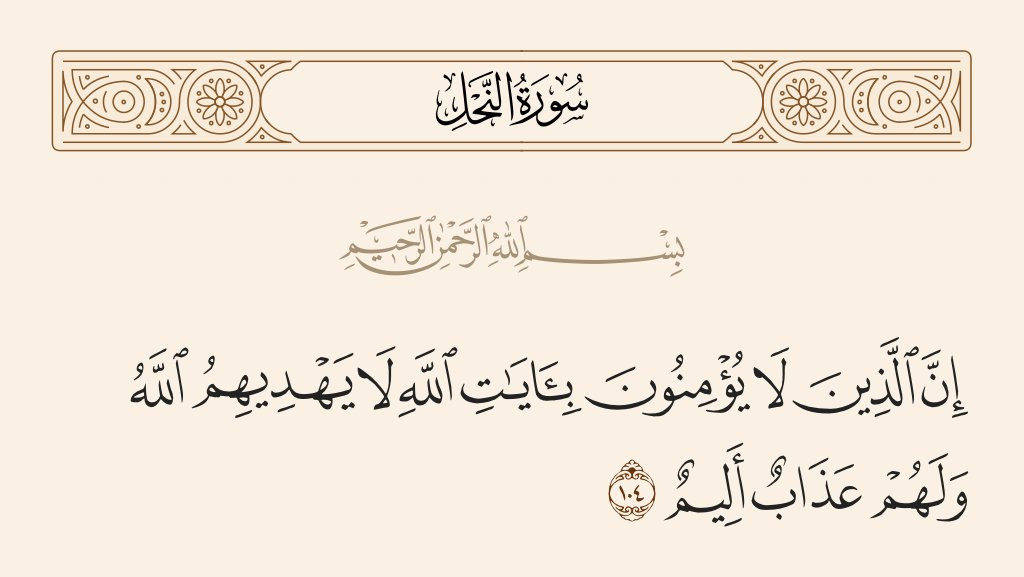 سُورَةُ النَّحْلِ
بِسْمِ ٱللَّهِ ٱلرَّحْمَٰنِ ٱلرَّحِيمِ
إِنَّ ٱلَّذِينَ لَا يُؤْمِنُونَ بِـَٔايَـٰتِ ٱللَّهِ لَا يَهْدِيهِمُ ٱللَّهُ
وَلَهُمْ عَذَابٌ أَلِيمٌ ١٠٤